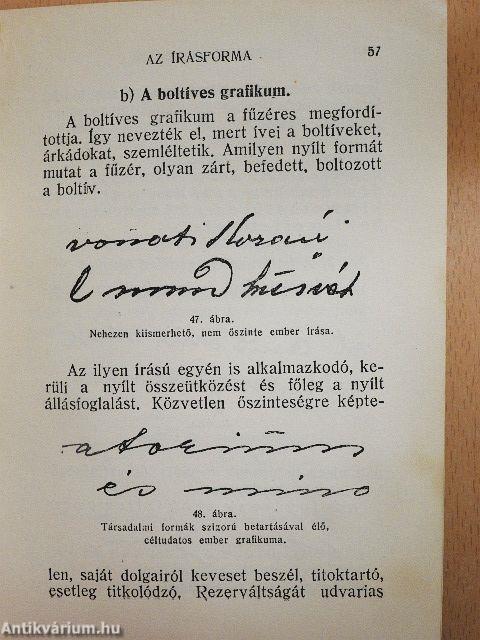 AZ ÍRÁSFORMA 57
b) A boltíves grafikum.
A boltíves grafikum a fűzéres megfordí-
tottja. Így nevezték el, mert ívei a boltíveket,
árkádokat, szemléltetik. Amilyen nyílt formát
mutat a fűzér, olyan zárt, befedett, boltozott
a boltív.
vonati
47. ábra.
Nehezen kiismerhető, nem őszinte ember írása.
Az ilyen írású egyén is alkalmazkodó, ke-
rüli a nyílt összeütközést és főleg a nyílt
állásfoglalást. Közvetlen őszinteségre képte-
és
48. ábra.
Társadalmi formák szigorú betartásával élő,
céltudatos ember grafikuma.
len, saját dolgairól keveset beszél, titoktartó,
esetleg titkolódzó, Rezerváltságát udvarias
Antikvárium.hu